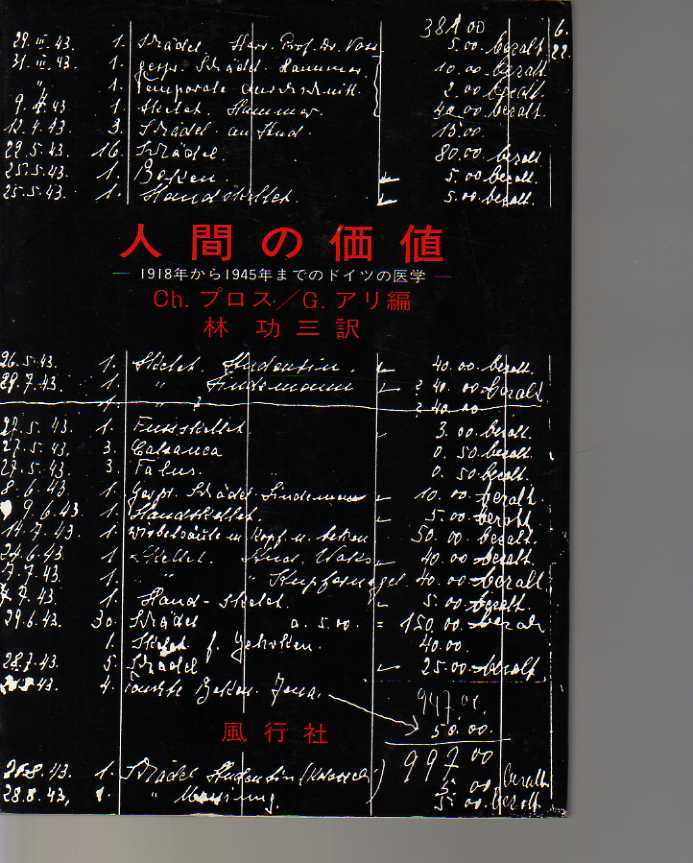 381.00
29.III.43. 1. Schädel Herr Prof. Dr. Voss 5.00 bezalt
31.III.43. 1. gespr. Schädel. Hammer. 10.00 bezalt.
" 1. Temporale durchschnitt. 2.00 bezalt.
9.4.43 1. Skelet. Hammer. 40.00 bezalt.
12.4.43 3. Schädel an Stud. 15.00.
29.5.43. 16. Schädel. 80.00 bezalt
25.5.43. 1. Becken. 5.00 bezalt.
25.5.43. 1. Handskelet. 5.00 bezalt.
人間の価値
― 1918年から1945年までのドイツの医学 ―
Ch. プロス／G. アリ編
林 功三訳
26.5.43. 1. Skelet. Studentin. 40.00 bezalt.
28.7.43. 1. " Lindemann ? 40.00 bezalt
1. " ? ? 40.00
27.5.43. 1. Fussskellet. 3.00 bezalt.
27.5.43. 3. 0.50 bezalt.
27.5.43 3. Talus. 0.50 bezalt.
8.6.43. 1. gespr. Schädel Lindemann 10.00 bezalt
9.6.43. 1. Handskellet. 5.00 bezalt
14.7.43. 1. Wirbelsäule m. Kopf u. beken 50.00 bezalt.
24.6.43 1. Skellet. Stud. 40.00 bezalt
7.7.43. 1. " " Kupfernagel 40.00 bezalt
7.7.43. 1. Hand-skelet. 5.00 bezalt.
29.6.43. 30. Schädel a. 5.00. = 150.00 bezalt
1. Skelet f. 40.00.
28.7.43 5. Schädel 25.00 bezalt
43. 4. Beken. Jena. 947.00.
50.00.
風行社
997.00
26.8.43. 1. Schädel Studentin 5.00 bezalt
28.8.43, 1. " 5.00 bezalt.